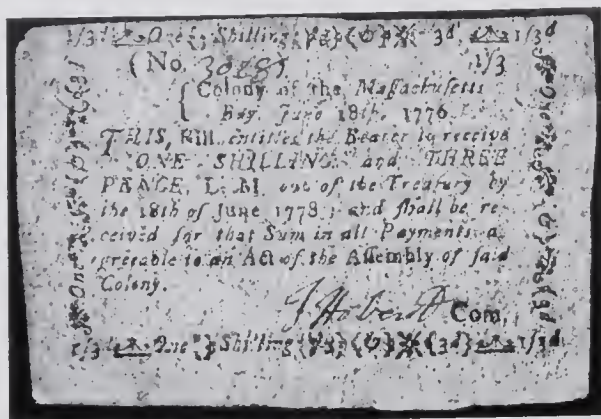 1/3d One Shilling & 3d 1/3d
(No. 3088) 1/3
Colony of the Maſſachuſetts
Bay, June 18th, 1776.
THIS Bill entitles the Bearer to receive
ONE SHILLING and THREE
PENCE, L. M. out of the Treaſury by
the 18th of June 1778; and ſhall be re-
ceived for that Sum in all Payments a-
greeable to an Act of the Aſſembly of ſaid
Colony.
Com.
1/3d One Shilling & 3d 1/3d